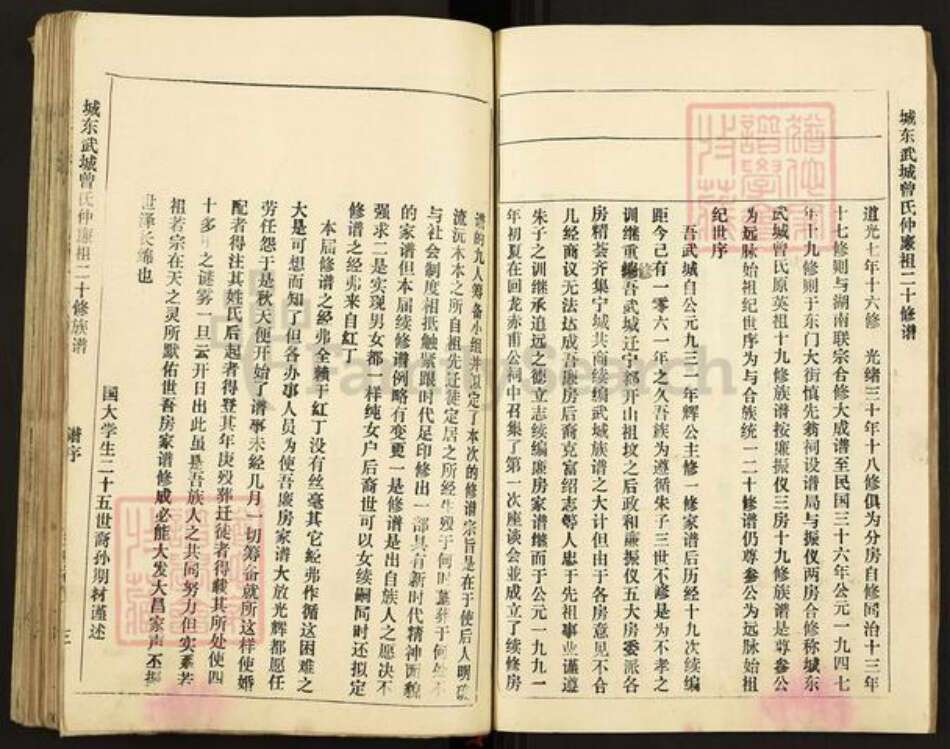 城东武城曾氏仲廉祖二十修谱
道光七年十六修　光绪三十年十八修俱为分房自修同治十三年
十七修则与湖南联宗合修大成谱至民国三十六年公元一九四七
年十九修则于东门大街慎先翁祠设谱局与振仪两房合修称城东
武城曾氏原英祖十九修族谱按廉振仪三房十九修族谱是尊参公
为远脉始祖纪世序为与合族统一二十修谱仍尊参公为远脉始祖
纪世序
吾武城自公元九三二年辉公主修一修家谱后历经十九次续编
距今已有一零六一年之久吾族为遵循朱子三世不修是为不孝之
训继重修吾武城迁宁都开山祖坟之后政和廉振仪五大房委派各
房精荟齐集宁城共商续编武城族谱之大计但由于各房意见不合
几经商议无法达成吾廉房后裔克富绍志等人忠于先祖事业谨遵
朱子之训继承追远之德立志续编廉房家谱继而于公元一九九一
年初夏在回龙赤甫公祠中召集了第一次座谈会並成立了续修房
谱的九人筹备小组并拟定了本次的修谱宗旨是在于使后人明确
流沅木本之所自祖先迁徒定居之所经生殁于何时墓葬于何处不
与社会制度相抵触紧跟时代足印修出一部具有新时代精神面貌
的家谱但本届续修谱例略有变更一是修谱是出自族人之愿决不
强求二是实现男女都一样纯女户后裔世可以女续嗣同时还拟定
修谱之经弗来自红丁
本届修谱之经弗全赖于红丁没有丝毫其它经弗作循这困难之
大是可想而知了但各办事人员为使吾廉房家谱大放光辉都愿任
劳任怨于是秋天便开始了谱事未经几月一切筹备就所这样使婚
配者得注其姓氏后起者得登其年庚殁葬迁徒者得载其所处使四
十多年之谜雾一旦云开日出此虽是吾族人之共同努力但实系若
祖若宗在天之灵所默佑世吾房家谱修成必能大发大昌家声丕振
世泽长绵也
国大学生二十五世裔孙期材谨述
城东武城曾氏仲廉祖二十修族谱
谱序
三
FamilySearch